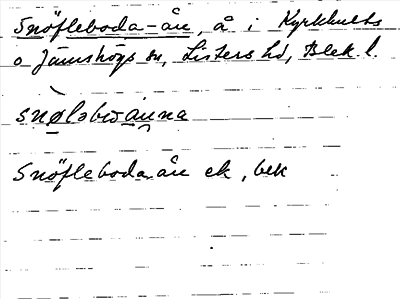 Snöfleboda-ån, å i Kyrkhults
o Jämshögs sn, Listers hd, Blek. l.
snøləbωånna
Snöfleboda ån ek, bek